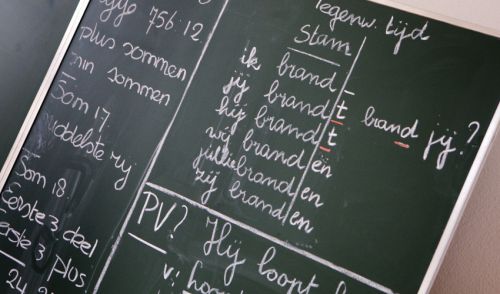 756:12
plus sommen
min sommen
Som 17
middelste rij
Som 18
Eerste 3 deel
Eerste 3 plus
24
Tegenw. tijd
stam
ik brand -
jij brand t brand jij?
hij brand t
wij brand en
jullie brand en
zij brand en
PV? Hij loopt
v: